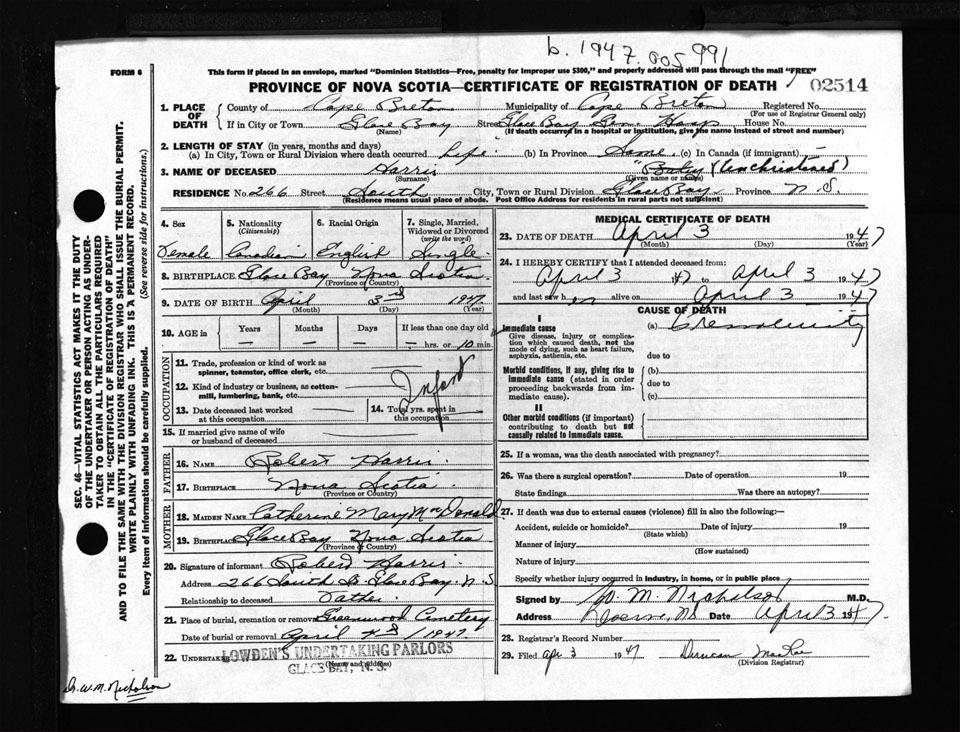 b. 1947. 005991
FORM 6
This form if placed in an envelope, marked "Dominion Statistics—Free, penalty for improper use $300," and properly addressed will pass through the mail "FREE"
PROVINCE OF NOVA SCOTIA—CERTIFICATE OF REGISTRATION OF DEATH
02514
1. PLACE OF DEATH
County of Cape Breton Municipality of Cape Breton Registered No.
(For use of Registrar General only)
If in City or Town Glace Bay Street Glace Bay Gen. Hosp House No.
(Name) (If death occurred in a hospital or institution, give the name instead of street and number)
2. LENGTH OF STAY (in years, months and days)
(a) In City, Town or Rural Division where death occurred Life (b) In Province Same (c) In Canada (if immigrant)
3. NAME OF DECEASED Harris "Baby" (Unchristened)
(Surname) (Given name or names)
RESIDENCE No. 266 Street South City, Town or Rural Division Glace Bay Province N.S.
(Residence means usual place of abode. Post Office Address for residents in rural parts not sufficient)
4. Sex
Female
5. Nationality
(Citizenship)
Canadian
6. Racial Origin
English
7. Single, Married, Widowed or Divorced
(write the word)
Single.
8. BIRTHPLACE Glace Bay Nova Scotia.
(Province or Country)
9. DATE OF BIRTH April 3rd 1947.
(Month) (Day) (Year)
10. AGE in Years Months Days If less than one day old
— — — — hrs. or 10 min.
OCCUPATION
11. Trade, profession or kind of work as spinner, teamster, office clerk, etc.
12. Kind of industry or business, as cotton-mill, lumbering, bank, etc.
Infant
13. Date deceased last worked at this occupation
14. Total yrs. spent in this occupation
15. If married give name of wife or husband of deceased
FATHER
16. NAME Robert Harris
17. BIRTHPLACE Nova Scotia
(Province or Country)
MOTHER
18. MAIDEN NAME Catherine Mary MacDonald
19. BIRTHPLACE Glace Bay Nova Scotia
(Province or Country)
20. Signature of informant Robert Harris
Address 266 South St. Glace Bay. N.S
Relationship to deceased Father.
21. Place of burial, cremation or removal Greenwood Cemetery
Date of burial or removal April 4th 1947
22. Undertaker LOWDEN'S UNDERTAKING PARLORS
(Name and address)
GLACE BAY, N. S.
MEDICAL CERTIFICATE OF DEATH
23. DATE OF DEATH April 3 1947
(Month) (Day) (Year)
24. I HEREBY CERTIFY that I attended deceased from:
April 3 1947 to April 3 1947
and last saw her alive on April 3 1947
CAUSE OF DEATH
I
Immediate cause
Give disease, injury or complication which caused death, not the mode of dying, such as heart failure, asphyxia, asthenia, etc.
(a) Prematurity
due to
Morbid conditions, if any, giving rise to immediate cause (stated in order proceeding backwards from immediate cause).
(b)
due to
(c)
II
Other morbid conditions (if important) contributing to death but not causally related to immediate cause.
25. If a woman, was the death associated with pregnancy?
26. Was there a surgical operation? Date of operation 19
State findings Was there an autopsy?
27. If death was due to external causes (violence) fill in also the following:—
Accident, suicide or homicide? Date of injury 19
(State which)
Manner of injury
(How sustained)
Nature of injury
Specify whether injury occurred in industry, in home, or in public place
Signed by W. M. Nicholson M.D.
Address NS Date April 3 1947
28. Registrar's Record Number
29. Filed Apr 3 1947 Duncan MacRae
(Division Registrar)
SEC. 46—VITAL STATISTICS ACT MAKES IT THE DUTY
OF THE UNDERTAKER OR PERSON ACTING AS UNDER-
TAKER TO OBTAIN ALL THE PARTICULARS REQUIRED
IN THE "CERTIFICATE OF REGISTRATION OF DEATH"
AND TO FILE THE SAME WITH THE DIVISION REGISTRAR WHO SHALL ISSUE THE BURIAL PERMIT.
WRITE PLAINLY WITH UNFADING INK. THIS IS A PERMANENT RECORD.
Every item of information should be carefully supplied. (See reverse side for instructions.)
Dr. W. M. Nicholson